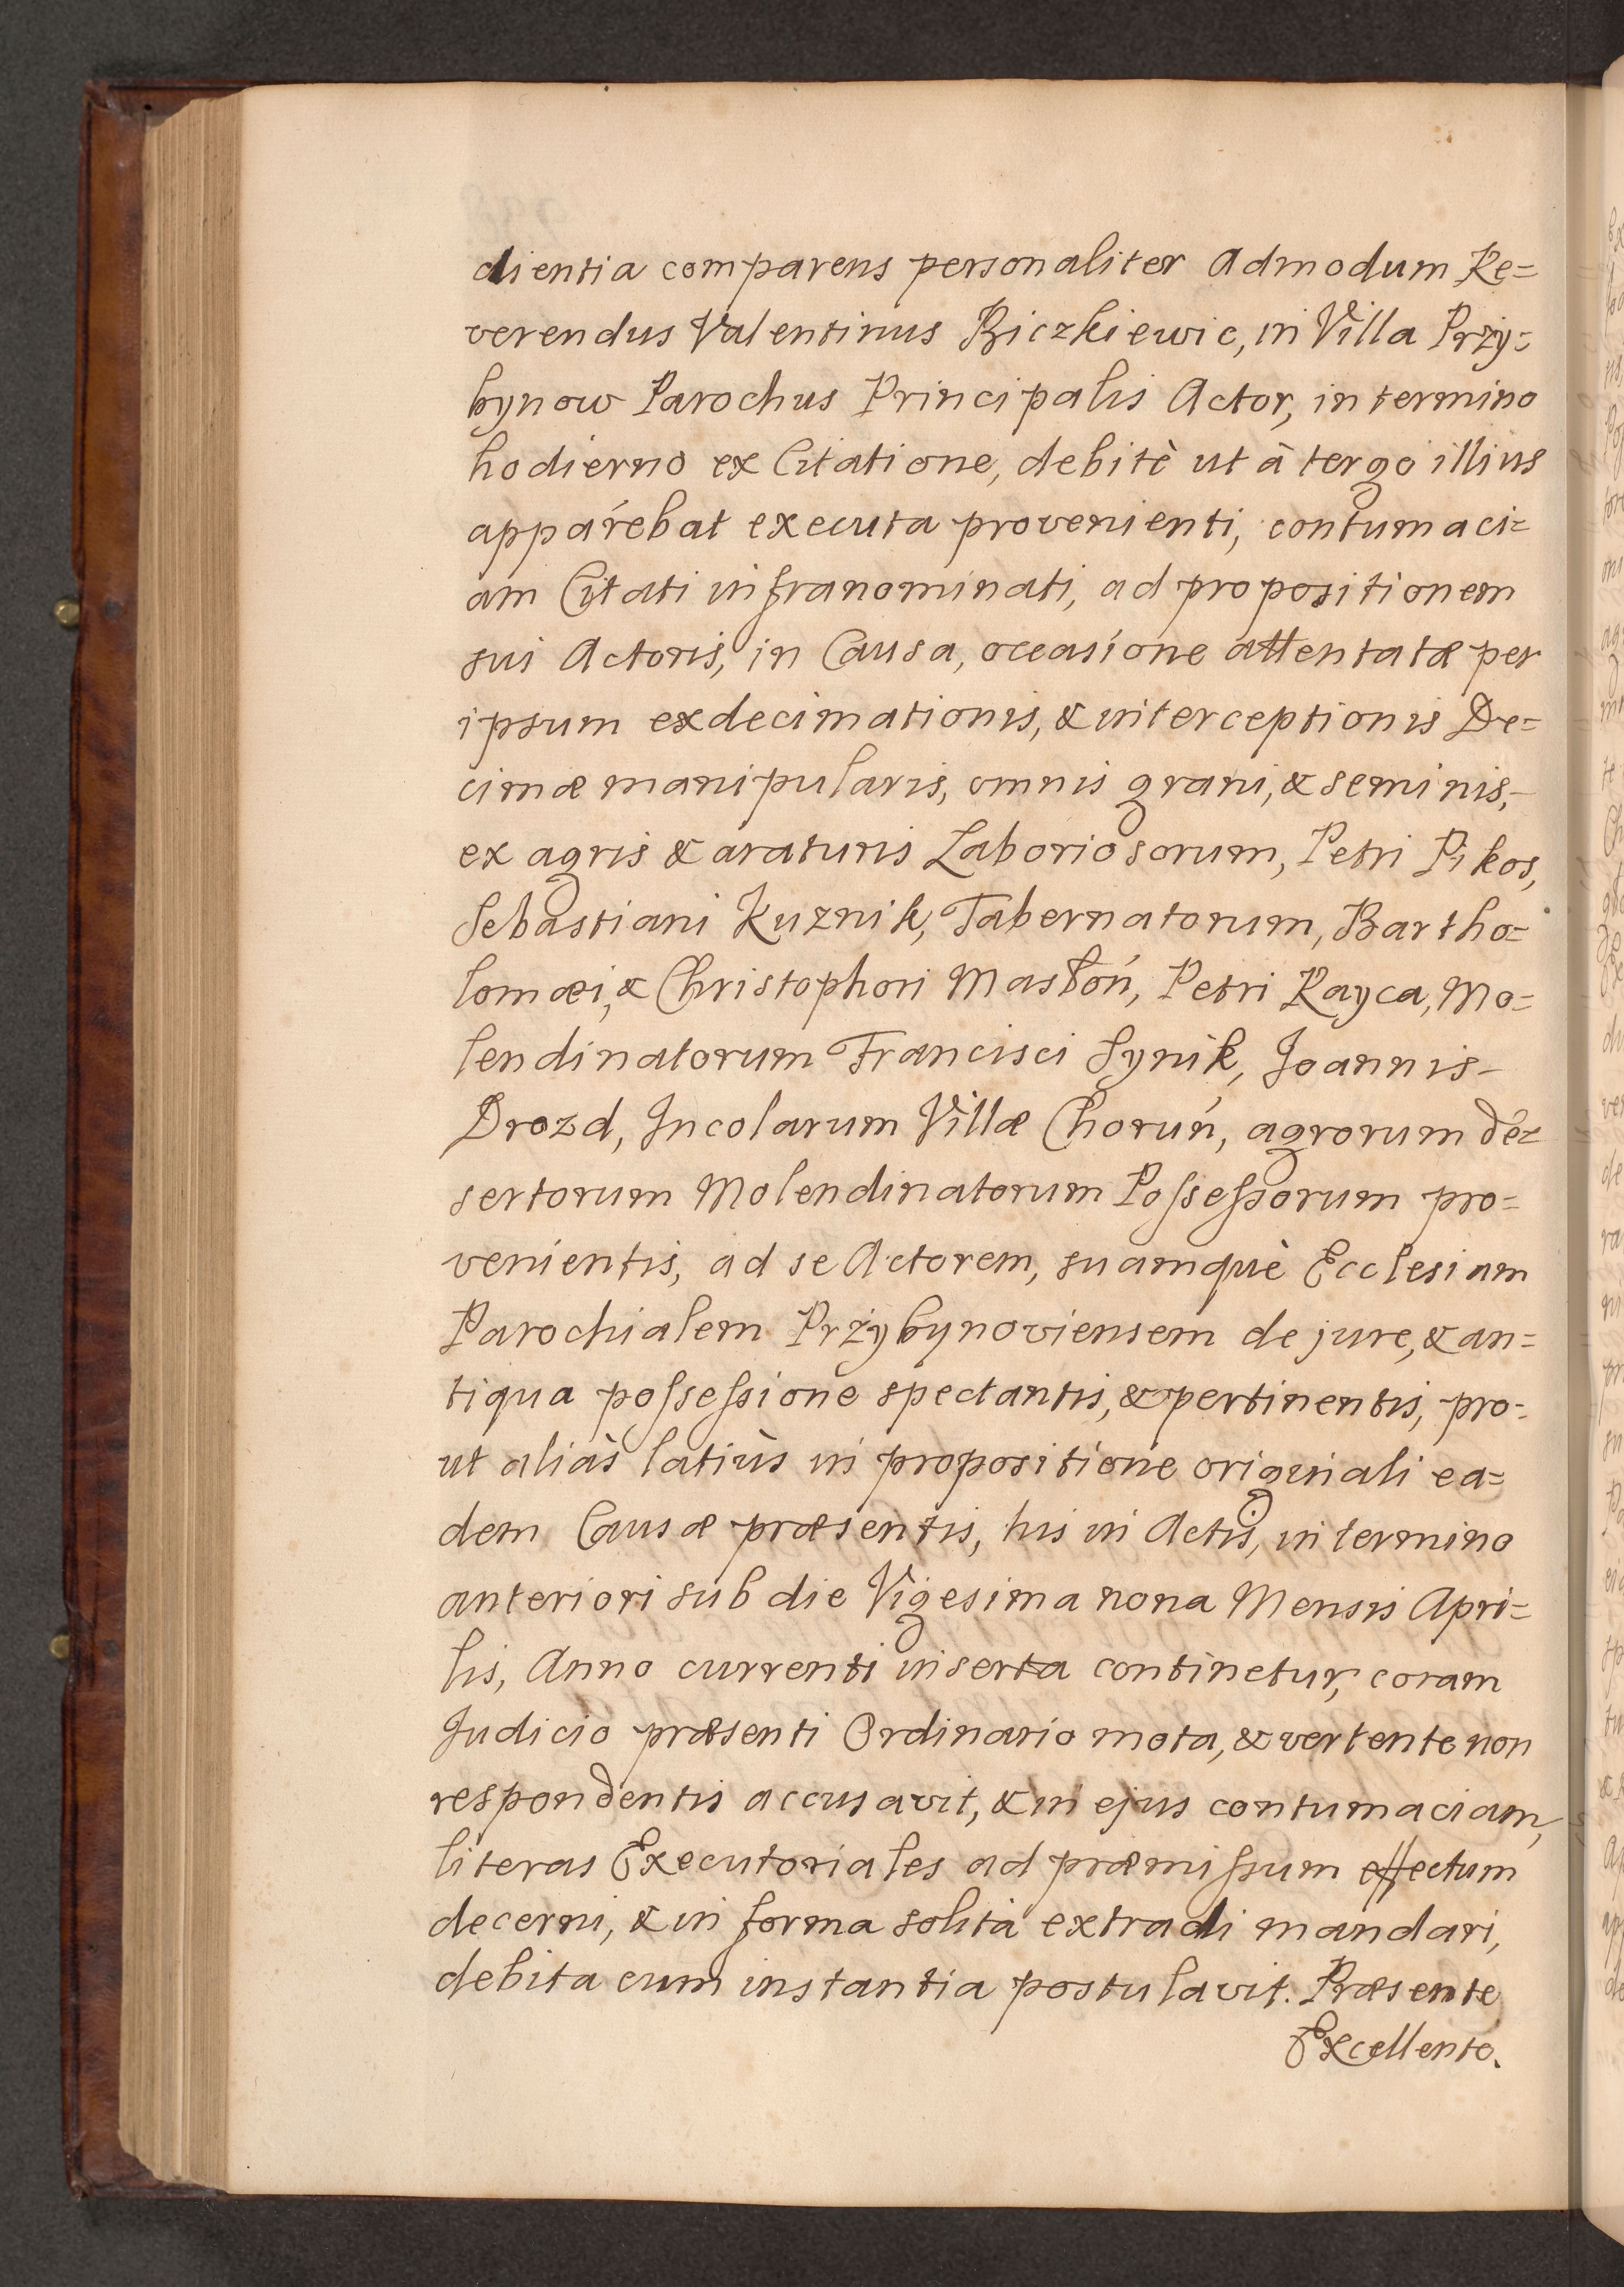 dientia comparens personaliter Admodum Re=
verendus Valentinus Biczkiewic, in Villa Przy=
bynow Parochus Principalis Actor, in termino
hodierno ex Citatione, debitè ut à tergo illius
apparebat executa provenienti, contumaci=
am Citati infranominati, ad propositionem
sui Actoris, in Causa, occasione attentatæ per
ipsum exdecimationis, & interceptionis De=
cimæ manipularis, omnis grani, & seminis,
ex agris & araturis Laboriosorum, Petri Pikos,
Sebastiani Kuznik, Tabernatorum, Bartho=
lomæi, & Christophori Masłoń, Petri Rayca, Mo=
lendinatorum Francisci Synik, Joannis
Drozd, Incolarum Villæ Choruń, agrorum de=
sertorum Molendinatorum Poſseſsorum pro=
venientis, ad se Actorem, suamquè Ecclesiam
Parochialem Przybynoviensem de jure, & an=
tiqua poſseſsione spectantis, & pertinentis, pro=
ut aliàs latiùs in propositione originali ea=
dem Causæ præsentis, his in Actis, in termino
anteriori sub die Vigesima nona Mensis Apri=
lis, Anno currenti inserta continetur, coram
Judicio præsenti Ordinario mota, & vertente non
respondentis accusavit, & in ejus contumaciam,
literas Executoriales ad præmiſsum effectum
decerni, & in forma solita extradi mandari,
debita cum instantia postulavit. Præsente
Excellente.